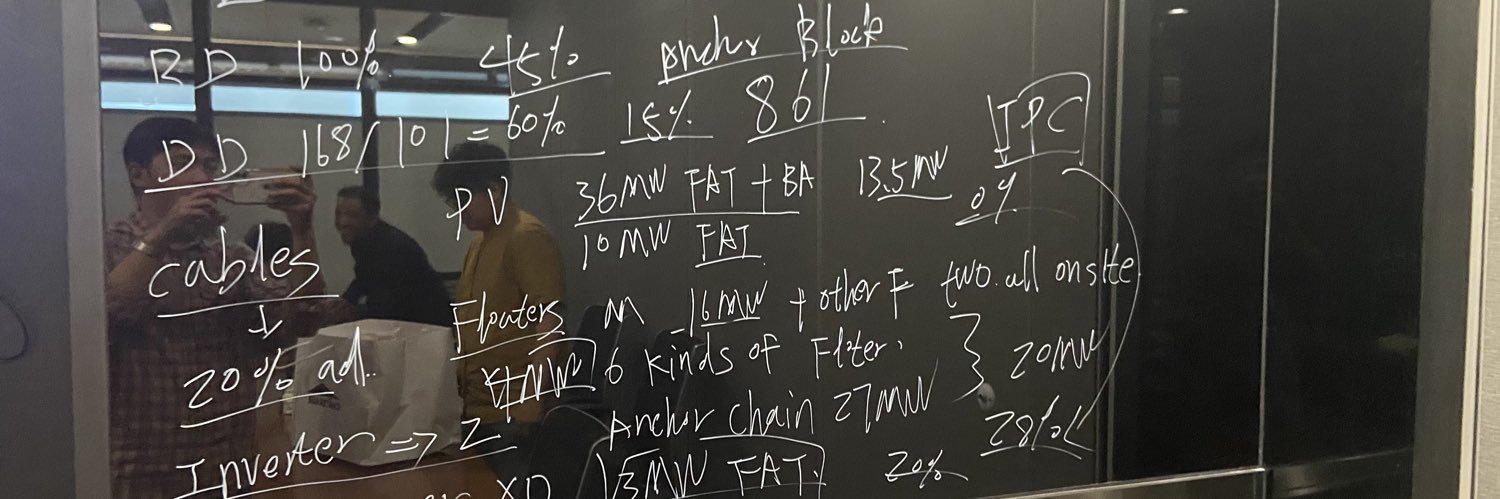 BD 100% 45% Anchor Block
DD 168/101 = 60% 15% 861
IPC
PV 36MW FAT + BA 13.5MW 0%
10MW FAT
cables
Floaters M 16MW + other F two. all on site
↓
20% adl. 6 kinds of Floter. } 20MW
Anchor chain 27MW
Inverter => 2 28%
13MW FAT. 20%
XD